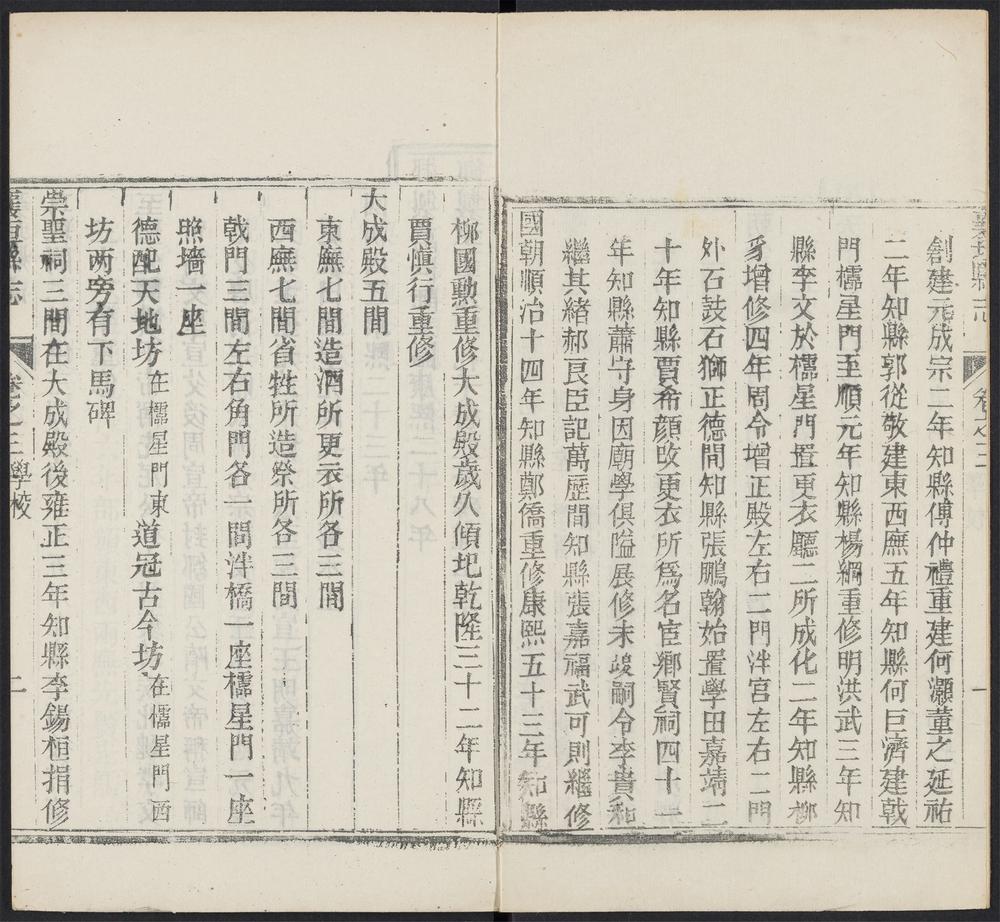 襄垣縣志
卷之三
一
創建元成宗二年知縣傅仲禮重建何灝董之延祐
二年知縣郭從敬建東西廡五年知縣何巨濟建戟
門欞星門至順元年知縣楊綱重修明洪武三年知
縣李文於欞星門置更衣廳二所成化二年知縣柳
豸增修四年周令增正殿左右二門泮宮左右二門
外石鼓石獅正德間知縣張鵬翰始置學田嘉靖二
十年知縣賈希顔改更衣所為名宦鄉賢祠四十一
年知縣蕭守身因廟學俱隘展修未竣嗣令李貴和
繼其緒郝良臣記萬歷間知縣張嘉福武可則繼修
國朝順治十四年知縣鄭僑重修康熙五十三年知縣
柳國勳重修大成殿歲久傾圮乾隆三十二年知縣
賈慎行重修
大成殿五間
東廡七間造酒所更衣所各三間
西廡七間省牲所造祭所各三間
戟門三間左右角門各一間泮橋一座欞星門一座
照墻一座
德配天地坊在欞星門東道冠古今坊在欞星門西
坊兩旁有下馬碑
崇聖祠三間在大成殿後雍正三年知縣李錫桓捐修
襄垣縣志
卷之三學校
二